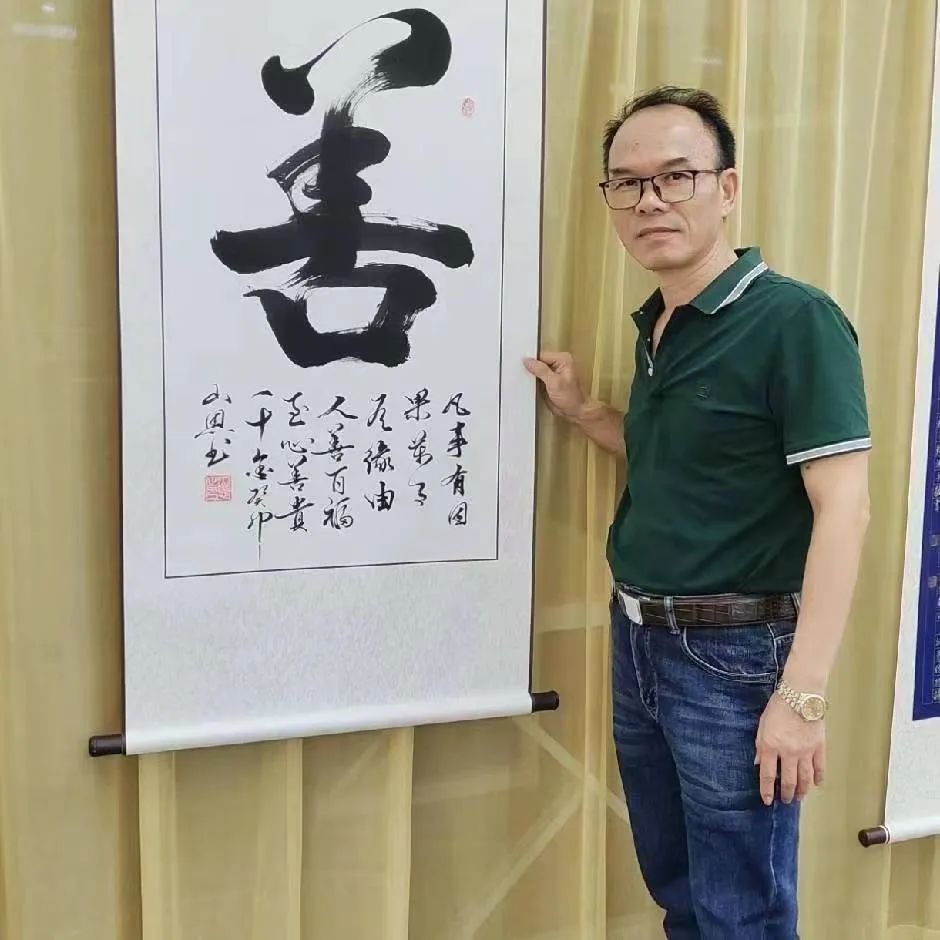 善
凡事有因
果萬事
有緣由
人善百福
至心善貴
千金癸卯